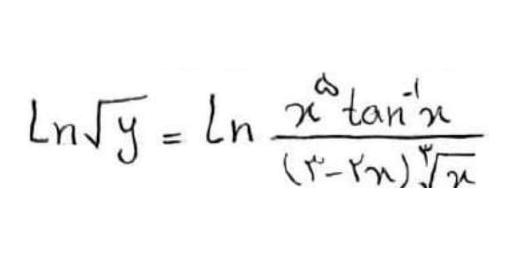 Ln√y = Ln (x^۵ tan⁻¹x) / ((۳-۲x) ∛x)